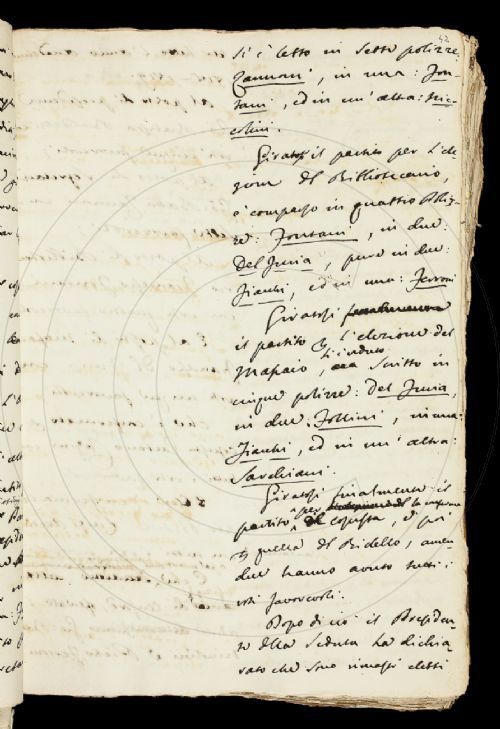 42
si è letto in sette polizze
Zannoni, in una: Fon-
tani, ed in un' altra: Nic-
colini.
Giratosi il partito per l'ele-
zione del Bibliotecario,
è comparso in quattro Poliz-
ze: Fontani, in due:
Del Furia, pure in due:
Fianchi, ed in una: Ferroni
Giratosi
il partito p l'elezione del
Massaio, si è veduto scritto in
cinque polizze: Del Furia,
in due: Follini, in una:
ed in un' altra:
Sarchiani.
Giratosi finalmente il
partito per la conferma
del Copista, e poi
p quella del Bidello, amen-
due hanno avuto tutti i
voti favorevoli.
Dopo di ciò il Presiden-
te della Seduta ha dichia-
rato che sono rimasti eletti